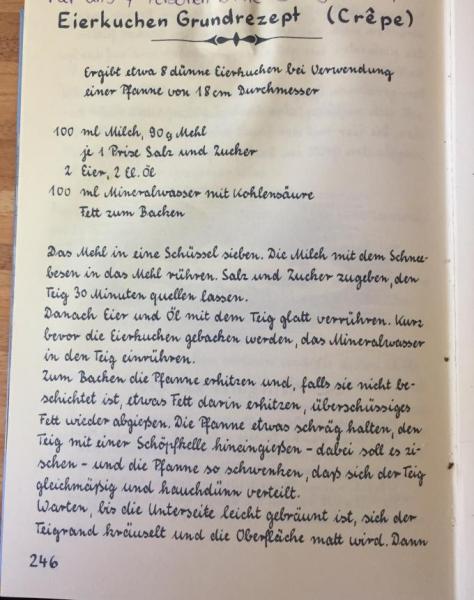 Eierkuchen Grundrezept (Crêpe)
Ergibt etwa 8 dünne Eierkuchen bei Verwendung
einer Pfanne von 18 cm Durchmesser
100 ml Milch, 90 g Mehl
je 1 Prise Salz und Zucker
2 Eier, 2 El. Öl
100 ml Mineralwasser mit Kohlensäure
Fett zum Backen
Das Mehl in eine Schüssel sieben. Die Milch mit dem Schnee-
besen in das Mehl rühren. Salz und Zucker zugeben, den
Teig 30 Minuten quellen lassen.
Danach Eier und Öl mit dem Teig glatt verrühren. Kurz
bevor die Eierkuchen gebacken werden, das Mineralwasser
in den Teig einrühren.
Zum Backen die Pfanne erhitzen und, falls sie nicht be-
schichtet ist, etwas Fett darin erhitzen, überschüssiges
Fett wieder abgießen. Die Pfanne etwas schräg halten, den
Teig mit einer Schöpfkelle hineingießen - dabei soll es zi-
schen - und die Pfanne so schwenken, daß sich der Teig
gleichmäßig und hauchdünn verteilt.
Warten, bis die Unterseite leicht gebräunt ist, sich der
Teigrand kräuselt und die Oberfläche matt wird. Dann
246